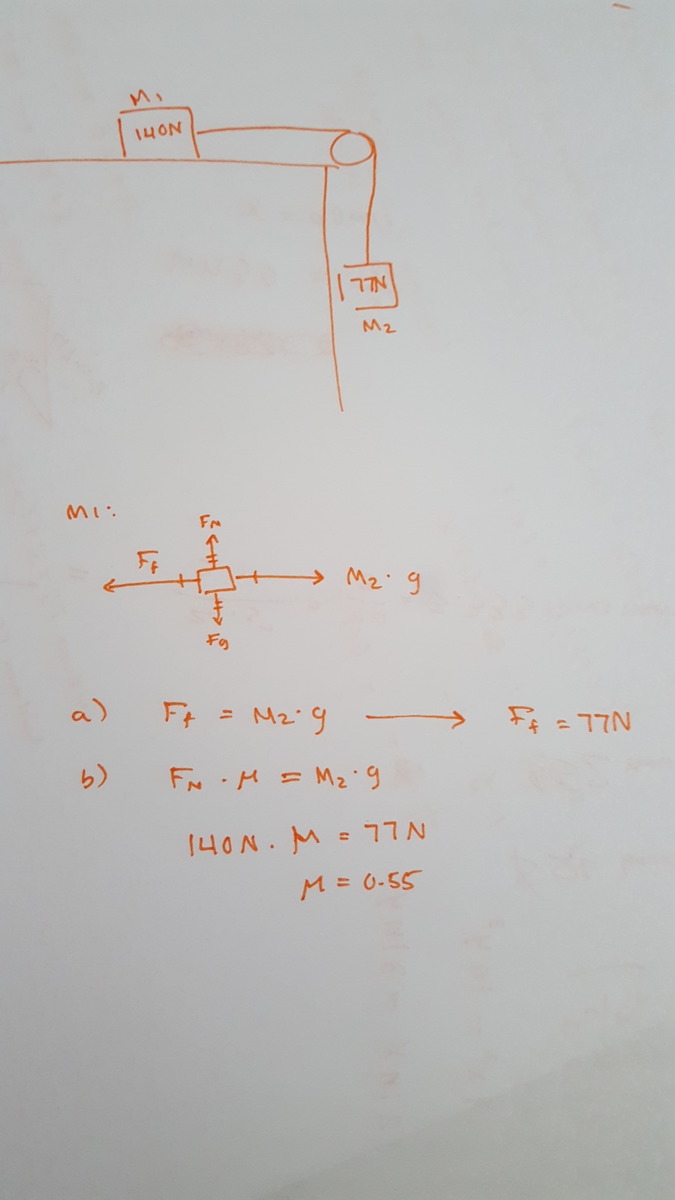 M1
140N
77N
M2
M1:
FN
Ff
M2. g
Fg
a) Ff = M2.g → Ff = 77N
b) FN . μ = M2.g
140N. μ = 77N
μ = 0.55